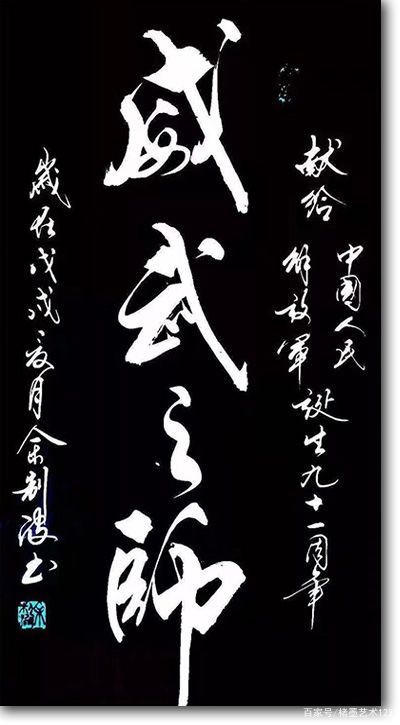 献给
中國人民
解放軍誕生九十一周年
威武之師
歲在戊戌夏月余
书
百家号/楮墨艺术12